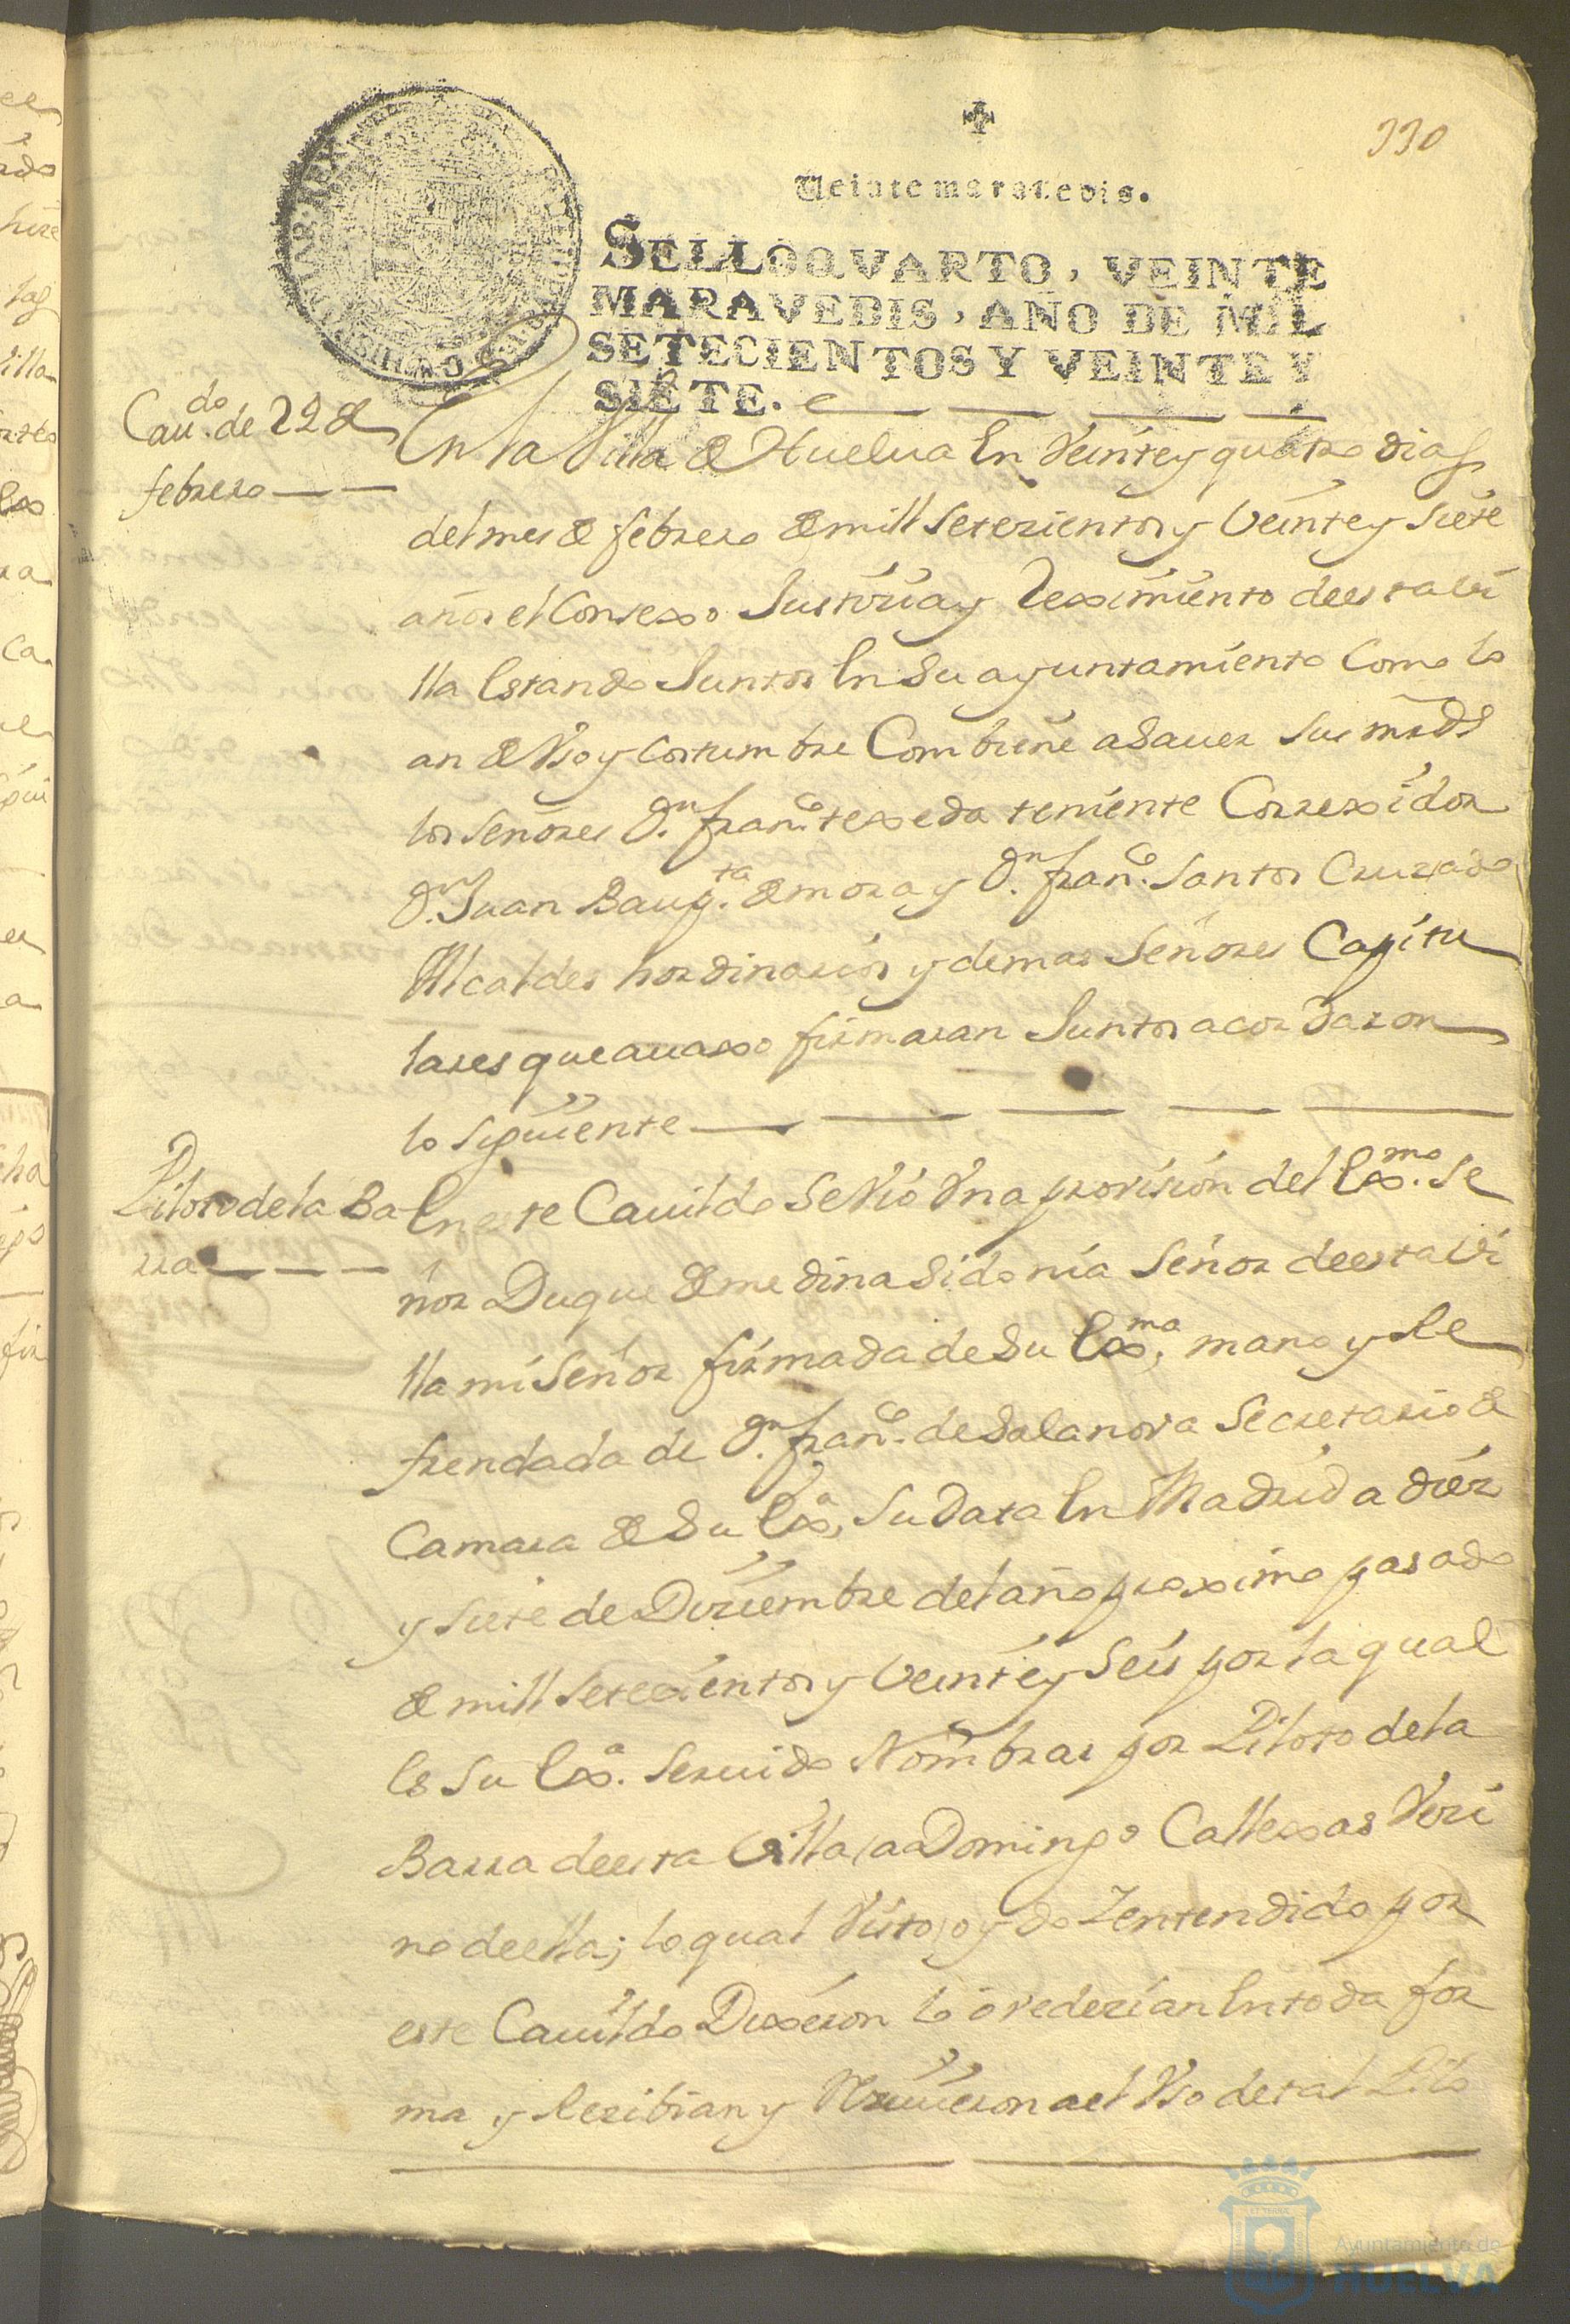 330
Veinte maravedis.
SELLO QVARTO, VEINTE
MARAVEDIS, AÑO DE MIL
SETECIENTOS Y VEINTE Y
SIETE.
Cau.do de 24 de
febrero
En la Villa de Huelua En Veinte y quatro dias
del mes de febrero de mill setezientos y Veinte y siete
años el Consexo Justizia y Reximiento de esta Vi
lla Estando Juntos En su ayuntamiento Como lo
an de Vso y costumbre Combiene a Sauer sus mrds
los señores Dn. franco. texeda teniente Correxidor
Dn. Juan Baupta. de mora y Dn. franco. Santos Cruzado
Alcaldes hordinarios y demas Señores Capitu
lares que auaxo firmaran Juntos acordaron
lo siguiente
Piloto de la Ba
rra
En este Cauildo se Vio Vna provision del Exmo. Se
ñor Duque de medina Sidonia Señor de esta Vi
lla mi Señor firmada de Su Exma. mano y Re
frendada de Dn. franco. de Salanova Secretario de
Camara de Su Exa. su Data En Madrid a diez
y siete de Diziembre del año proximo pasado
de mill setecientos y Veinte y Seis por la qual
Es Su Exa. Seruido Nombrar por Piloto de la
Barra de esta Villa a Domingo Callexas Vezi
no de ella; lo qual Visto oydo Y entendido por
este Cauildo Dixeron lo ovedezian En toda for
ma y Rezibian y Rezivieron a el Vso de tal Pilo
Ayuntamiento de
HUELVA